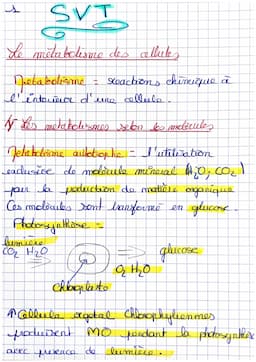 SVT
Le métabolisme des cellules
Métabolisme = réactions chimique à
l'intérieur d'une cellule.
1/ Les métabolismes selon les molécules
Métabolisme autotrophe = l'utilisation
exclusive de molécule minéral (H2O, CO2)
pour la production de matière organique
Ces molécules sont transformé en glucose.
Photosynthèse =
lumière
CO2 H2O glucose
O2 H2O
Chloroplaste
Cellule végétal chlorophyliennes
produisent MO pendant la photosynthèse
avec présence de lumière.